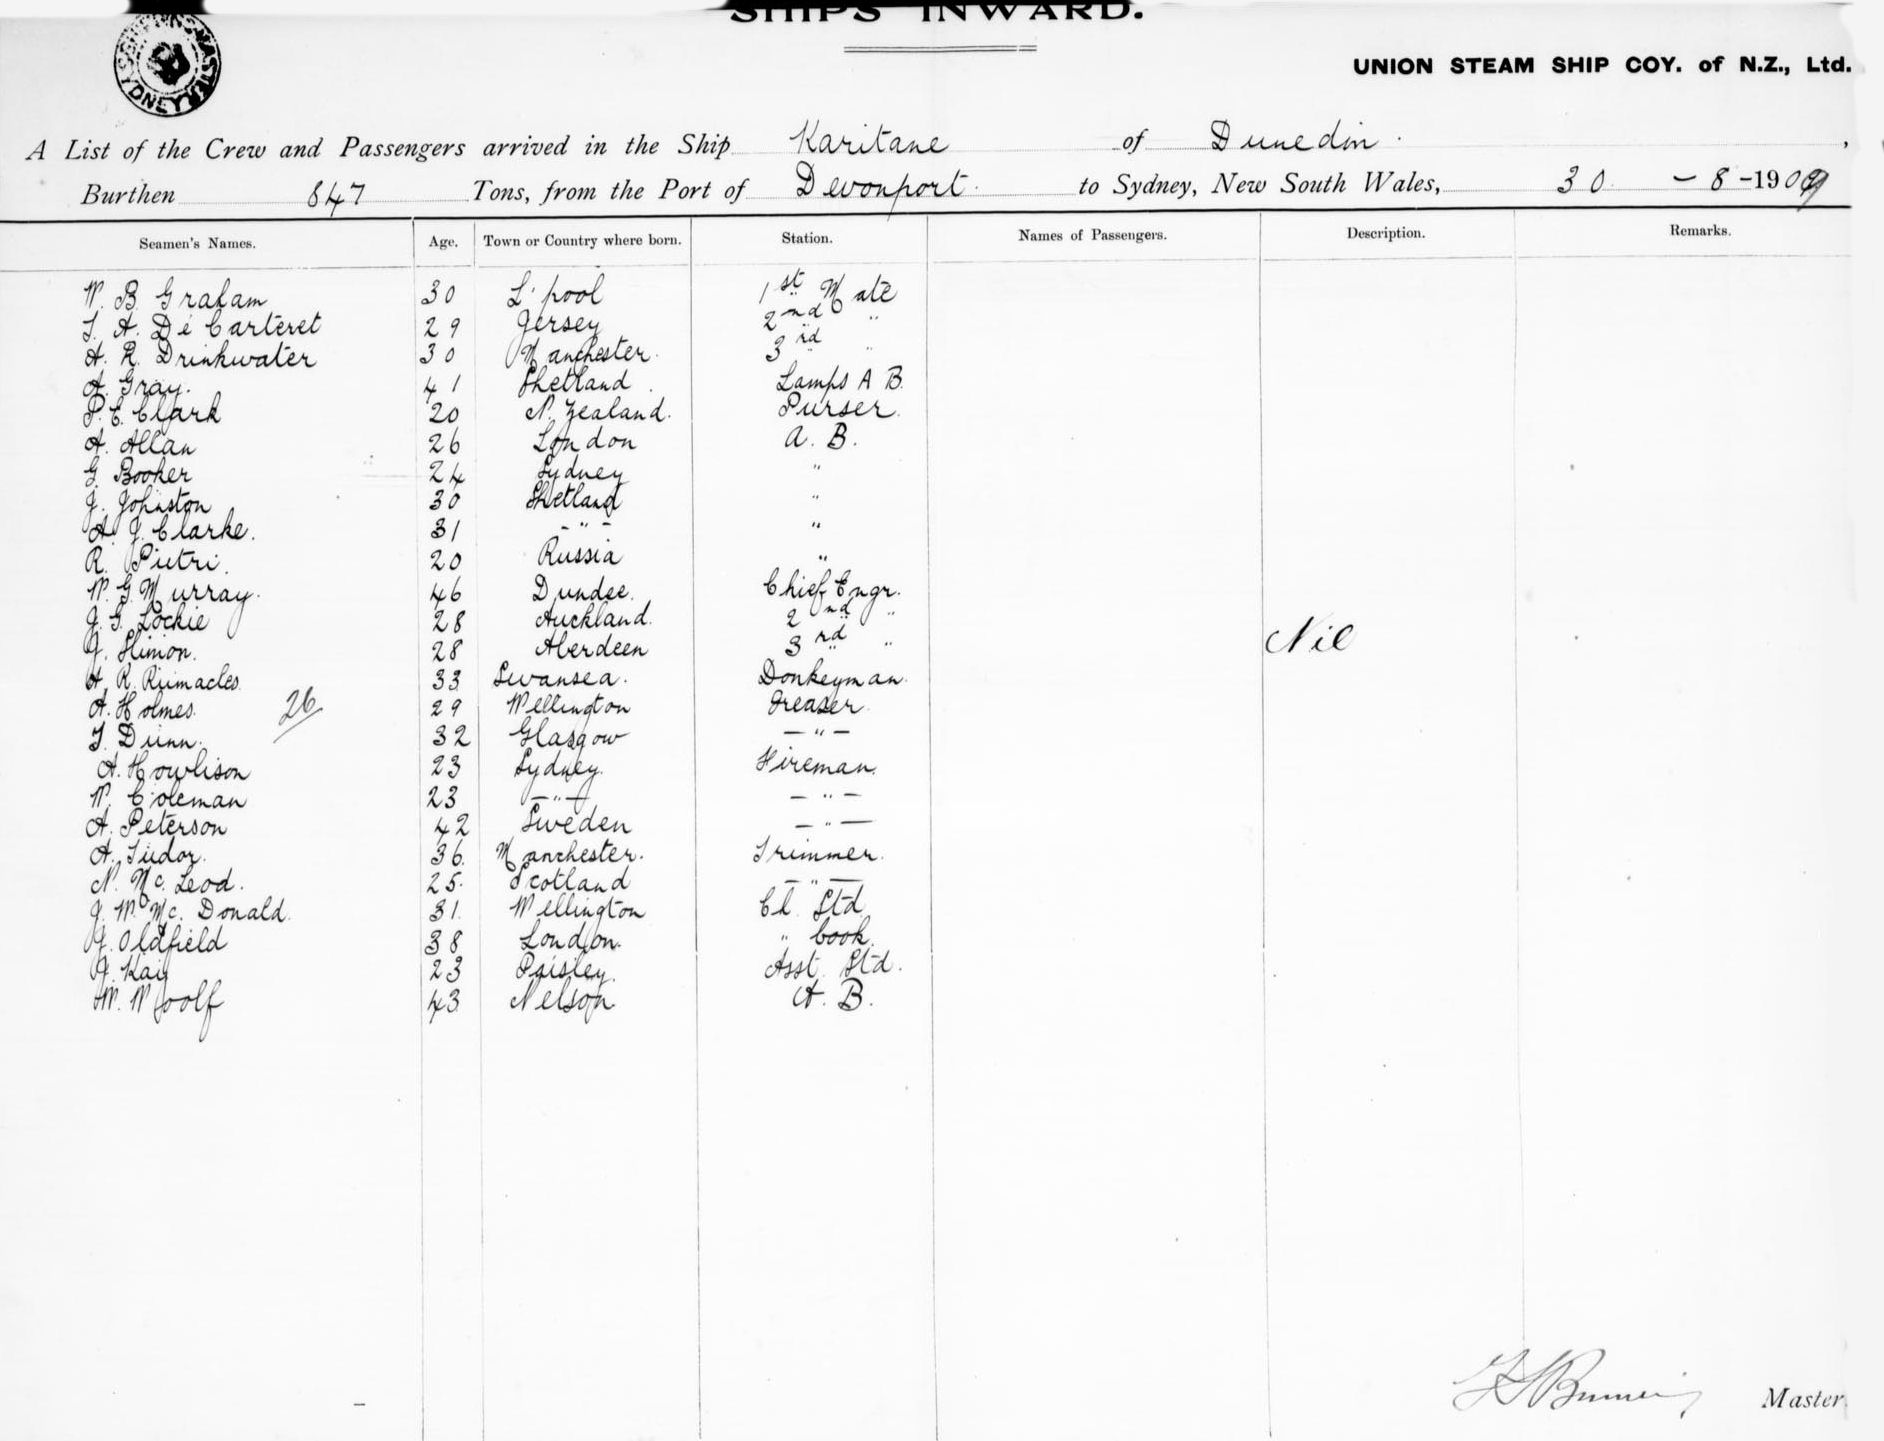 SHIPS INWARD.
UNION STEAM SHIP COY. of N.Z., Ltd.
A List of the Crew and Passengers arrived in the Ship Karitane of Dunedin,
Burthen 847 Tons, from the Port of Devonport to Sydney, New South Wales, 30 - 8 - 1909
Seamen's Names. Age. Town or Country where born. Station. Names of Passengers. Description. Remarks.
W. B. Graham 30 L'pool 1st Mate
A. De Carteret 29 Jersey 2nd "
A. R. Drinkwater 30 Manchester. 3rd "
A. Gray. 41 Shetland. Lamps A B.
P. E. Clark 20 N. Zealand. Purser.
A. Allan 26 London A. B.
G. Booker 24 Sydney "
J. Johnston 30 Shetland "
A. J. Clarke. 31 - " - "
R. Putri. 20 Russia "
W. G. Murray. 46 Dundee. Chief Engr.
J. G. Lockie 28 Auckland. 2nd "
J. Slimon. 28 Aberdeen 3rd "
Nil
A. R. Rumacles 33 Swansea. Donkeyman.
A. Holmes. 29 Wellington Greaser.
26
T. Dunn. 32 Glasgow - " -
A. Howlison 23 Sydney. Fireman.
W. Coleman 23 - " - - " -
A. Peterson 42 Sweden - " -
A. Tudor. 36. Manchester. Trimmer.
N. Mc. Leod. 25. Scotland - " -
J. W. Mc. Donald. 31. Wellington Ch. Std.
J. Oldfield 38 London. " Cook.
J. Kay 23 Paisley. Asst. Std.
W. Woolf 43 Nelson A. B.
Master.